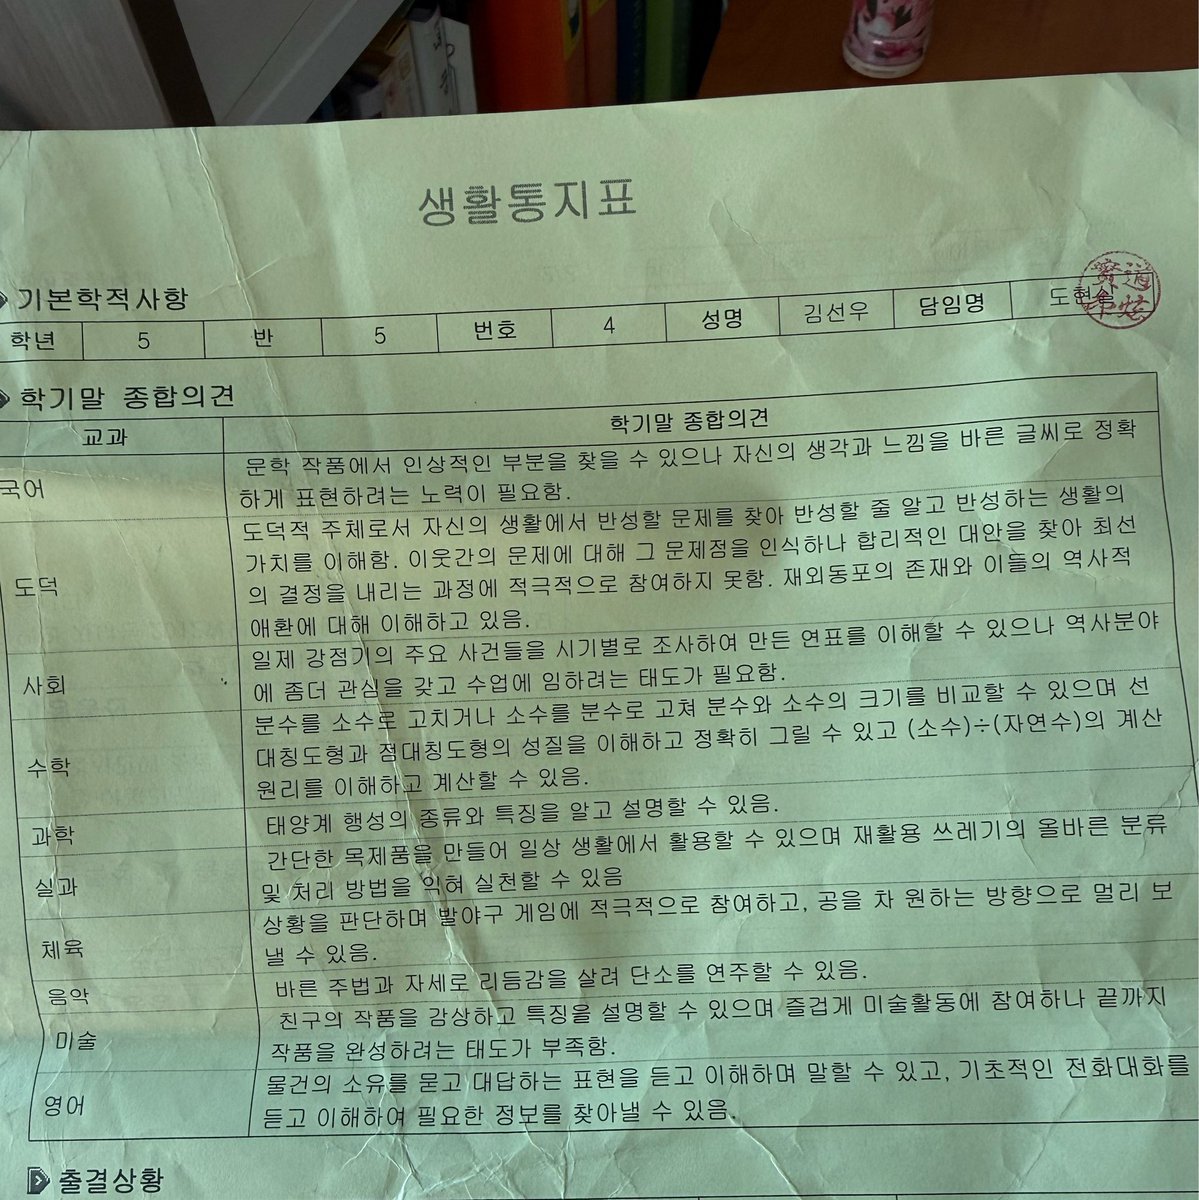 생활통지표
기본학적사항
학년 5 반 5 번호 4 성명 김선우 담임명 도현
학기말 종합의견
교과 학기말 종합의견
국어 문학 작품에서 인상적인 부분을 찾을 수 있으나 자신의 생각과 느낌을 바른 글씨로 정확
하게 표현하려는 노력이 필요함.
도덕 도덕적 주체로서 자신의 생활에서 반성할 문제를 찾아 반성할 줄 알고 반성하는 생활의
가치를 이해함. 이웃간의 문제에 대해 그 문제점을 인식하나 합리적인 대안을 찾아 최선
의 결정을 내리는 과정에 적극적으로 참여하지 못함. 재외동포의 존재와 이들의 역사적
애환에 대해 이해하고 있음.
사회 일제 강점기의 주요 사건들을 시기별로 조사하여 만든 연표를 이해할 수 있으나 역사분야
에 좀더 관심을 갖고 수업에 임하려는 태도가 필요함.
수학 분수를 소수로 고치거나 소수를 분수로 고쳐 분수와 소수의 크기를 비교할 수 있으며 선
대칭도형과 점대칭도형의 성질을 이해하고 정확히 그릴 수 있고 (소수)÷(자연수)의 계산
원리를 이해하고 계산할 수 있음.
과학 태양계 행성의 종류와 특징을 알고 설명할 수 있음.
실과 간단한 목제품을 만들어 일상 생활에서 활용할 수 있으며 재활용 쓰레기의 올바른 분류
및 처리 방법을 익혀 실천할 수 있음
체육 상황을 판단하며 발야구 게임에 적극적으로 참여하고, 공을 차 원하는 방향으로 멀리 보
낼 수 있음.
음악 바른 주법과 자세로 리듬감을 살려 단소를 연주할 수 있음.
미술 친구의 작품을 감상하고 특징을 설명할 수 있으며 즐겁게 미술활동에 참여하나 끝까지
작품을 완성하려는 태도가 부족함.
영어 물건의 소유를 묻고 대답하는 표현을 듣고 이해하며 말할 수 있고, 기초적인 전화대화를
듣고 이해하여 필요한 정보를 찾아낼 수 있음.
출결상황